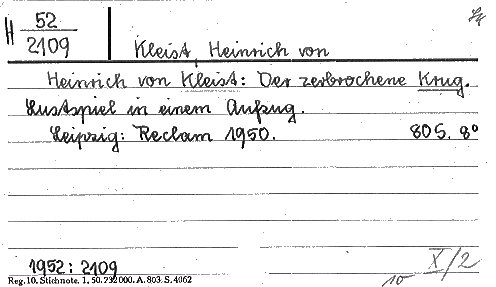 H 52
2109
Kleist, Heinrich von
Heinrich von Kleist: Der zerbrochene Krug.
Lustspiel in einem Aufzug.
Leipzig: Reclam 1950. 80 S. 8°
1952: 2109
X/2
10
Reg. 10. Stichnote. 1. 50. 232000. A. 803. S. 4062